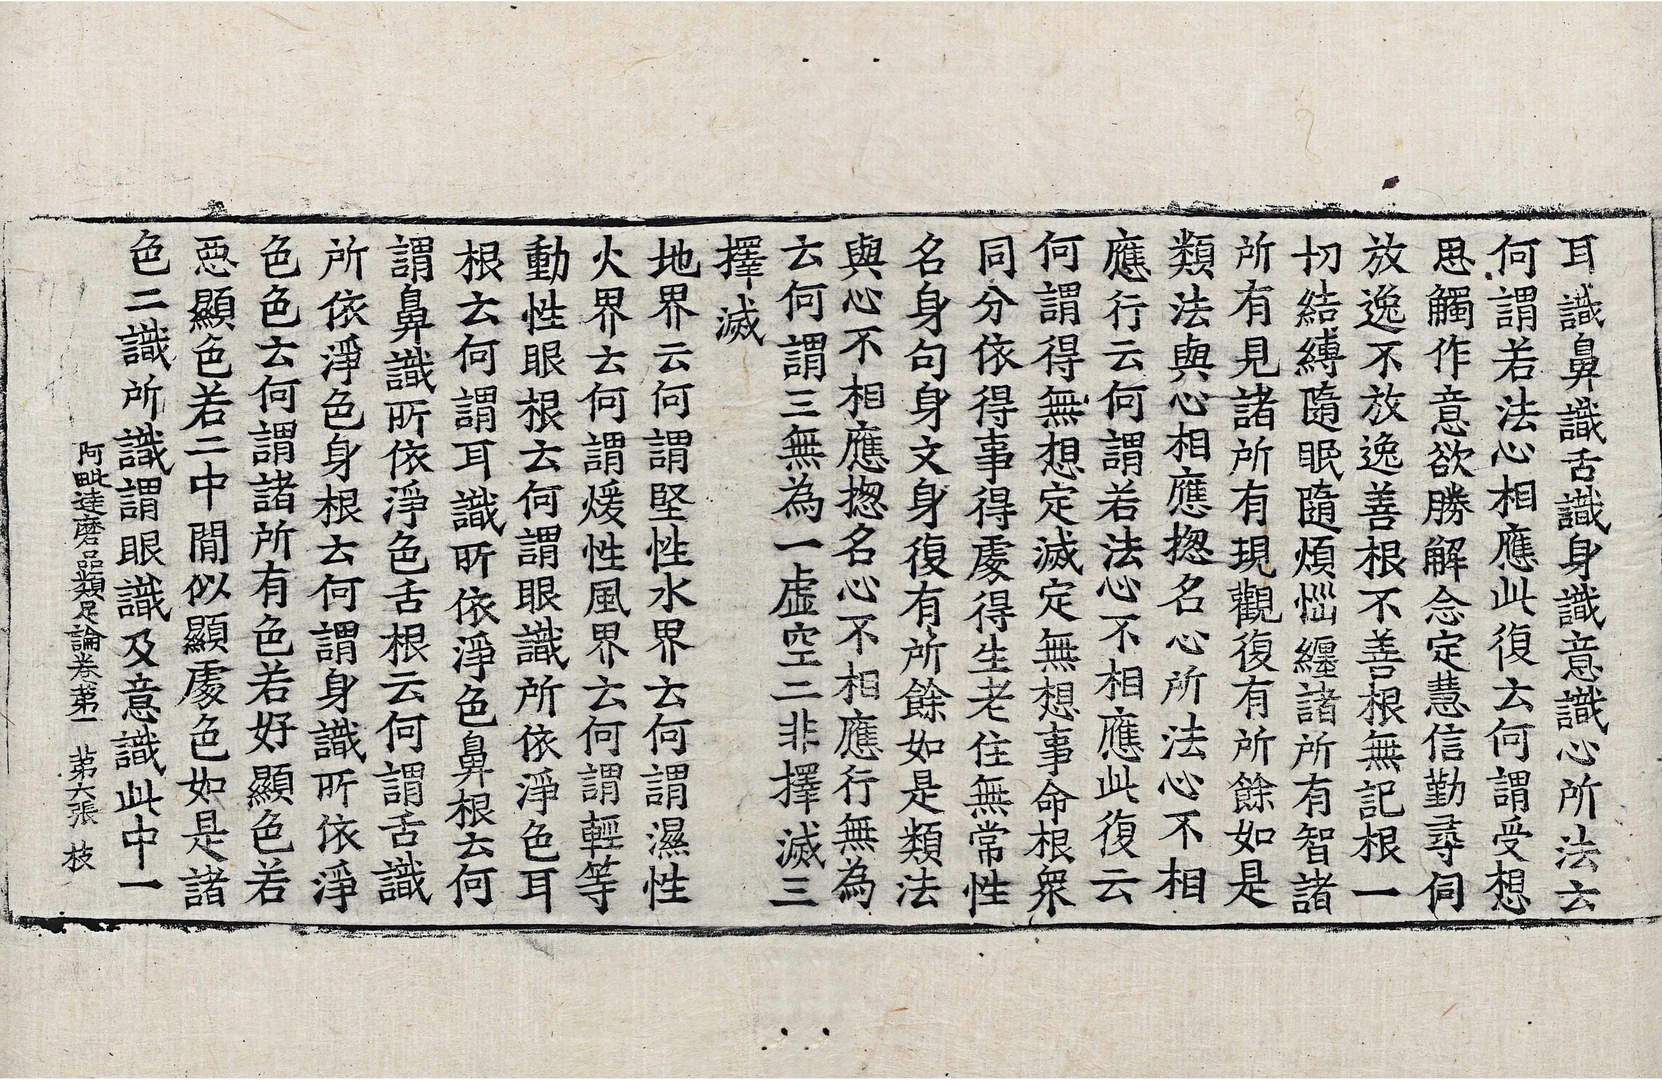 耳識鼻識舌識身識意識心所法云
何謂若法心相應此復云何謂受想
思觸作意欲勝解念定慧信勤尋伺
放逸不放逸善根不善根無記根一
切結縛隨眠隨煩惱纏諸所有智諸
所有見諸所有現觀復有所餘如是
類法與心相應揔名心所法心不相
應行云何謂若法心不相應此復云
何謂得無想定滅定無想事命根衆
同分依得事得處得生老住無常性
名身句身文身復有所餘如是類法
與心不相應揔名心不相應行無為
云何謂三無為一虛空二非擇滅三
擇滅
地界云何謂堅性水界云何謂濕性
火界云何謂煖性風界云何謂輕等
動性眼根云何謂眼識所依淨色耳
根云何謂耳識所依淨色鼻根云何
謂鼻識所依淨色舌根云何謂舌識
所依淨色身根云何謂身識所依淨
色色云何謂諸所有色若好顯色若
惡顯色若二中間似顯處色如是諸
色二識所識謂眼識及意識此中一
阿毗達磨品類足論卷第一 第六張 枝